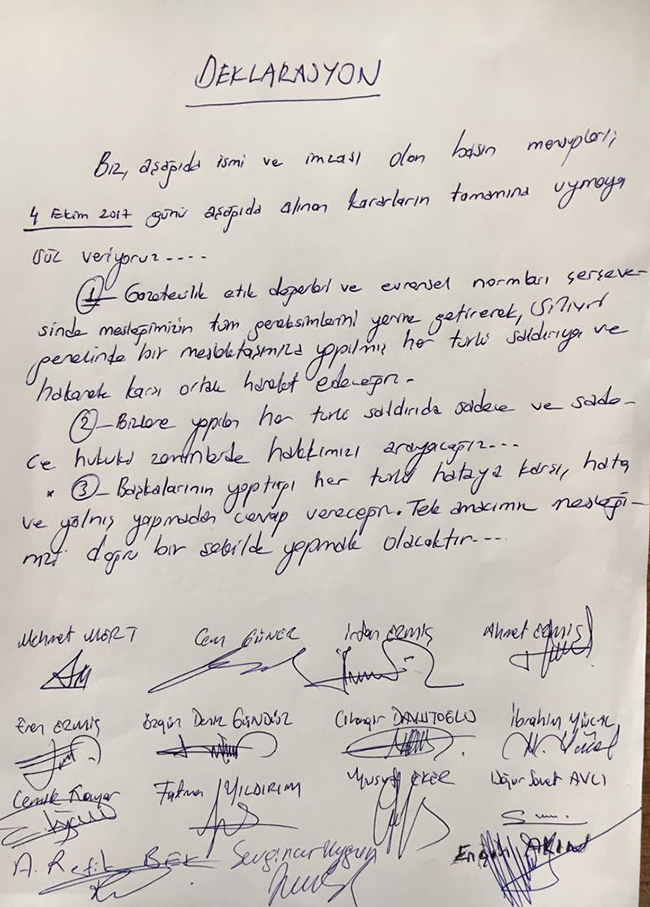 DEKLARASYON
Biz, aşağıda ismi ve imzası olan basın mensupları,
4 Ekim 2017 günü aşağıda alınan kararların tamamına uymaya
söz veriyoruz....
1- Gazetecilik etik değerleri ve evrensel normları çerçeve-
sinde mesleğimizin tüm gereksinimlerini yerine getirerek, Silivri
genelinde bir meslektaşımıza yapılmış her türlü saldırıya ve
hakarete karşı ortak hareket edeceğiz.
2- Bizlere yapılan her türlü saldırıda sadece ve sade-
ce hukuki zeminlerde hakkımızı arayacağız...
* 3- Başkalarının yaptığı her türlü hataya karşı, hata
ve yalnış yapmadan cevap vereceğiz. Tek amacımız mesleği-
mizi doğru bir şekilde yapmak olacaktır...
Mehmet MERT Cem GÜNER İrfan ERMİŞ Ahmet ERMİŞ
Eren ERMİŞ Özgün Deniz GÜNDÜZ Cihangir DAVUTOĞLU İbrahim YÜCEL
Cemik Fatma YILDIRIM Yusuf EKER Uğur Suat AVCI
A. Refik BEK Sevginur Uygun Engin AKIN